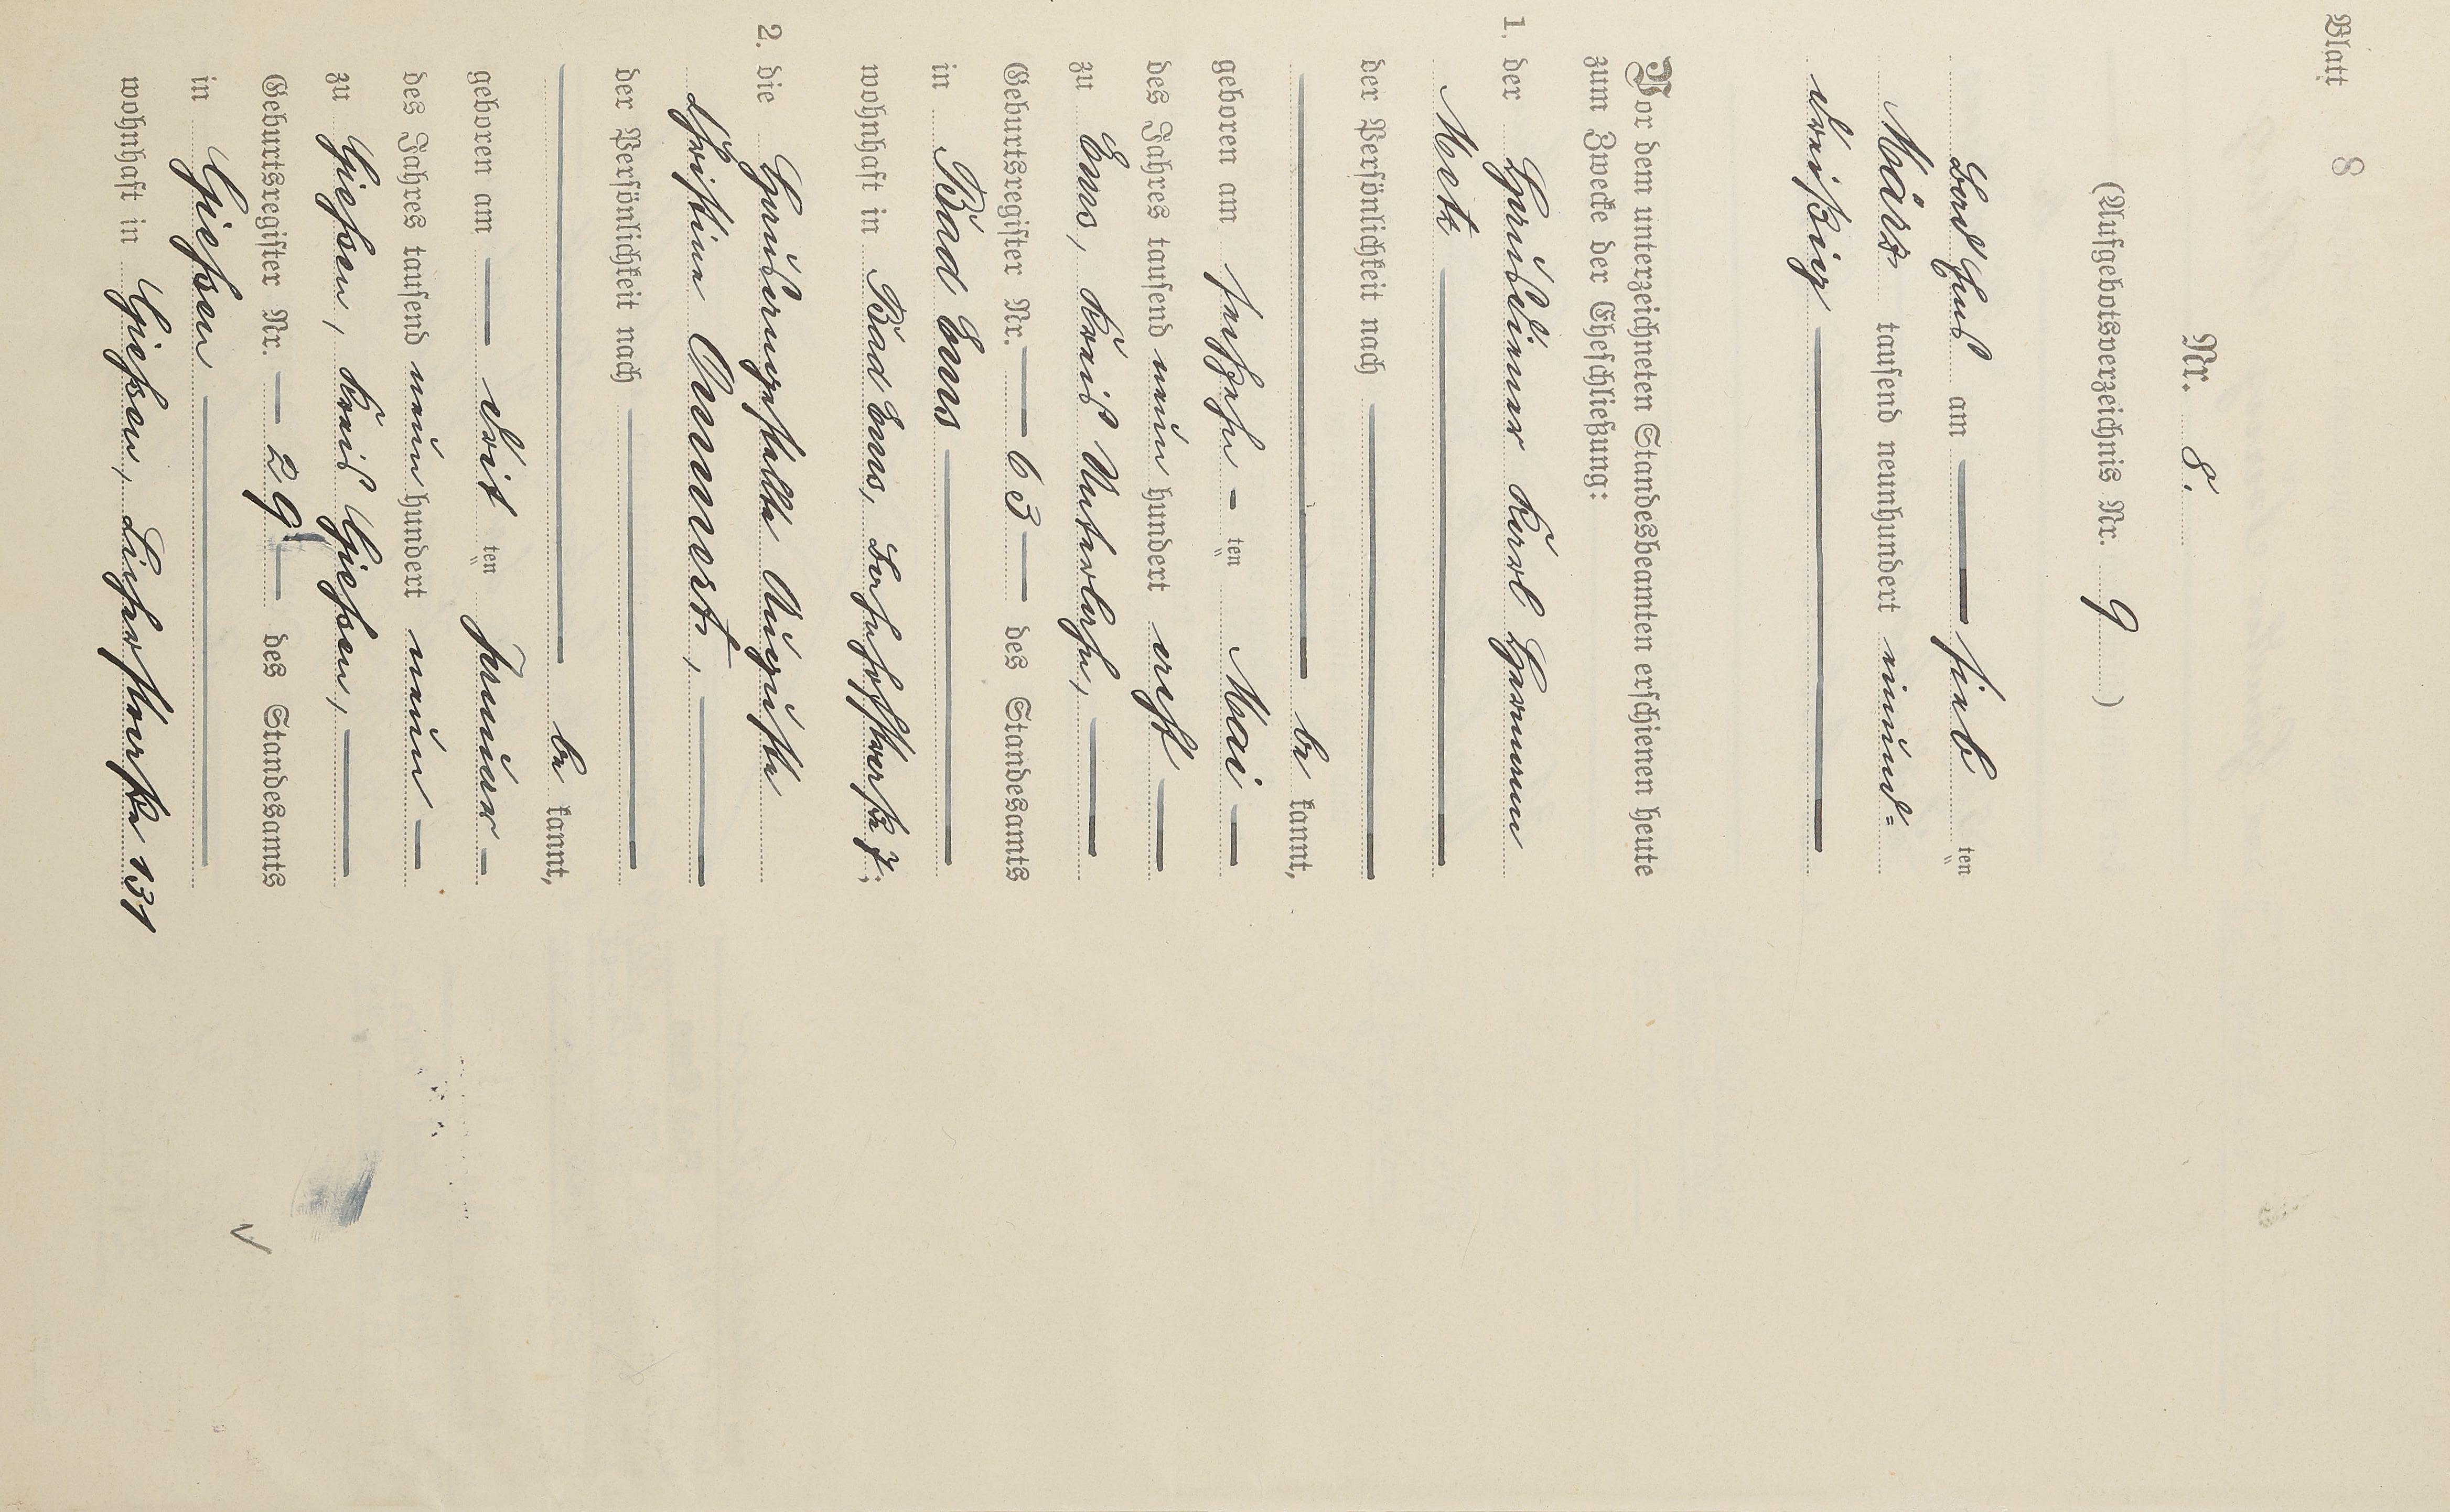 Blatt 8
Nr. 8.
(Aufgebotsverzeichnis Nr. 9)
Bad Ems am sieb ten
März tausend neunhundert einund=
dreißig
Vor dem unterzeichneten Standesbeamten erschienen heute
zum Zwecke der Eheschließung:
1. der Karl Hermann
der Persönlichkeit nach
be kannt,
geboren am sechzehn ten Mai
des Jahres tausend neun hundert acht
zu Ems, Kreis Unterlahn,
Geburtsregister Nr. 63 des Standesamts
in Bad Ems
wohnhaft in Bad Ems, 7;
2. die Hausangestellte Auguste
der Persönlichkeit nach
be kannt,
geboren am drit ten Januar
des Jahres tausend neun hundert neun
zu Giessen, Kreis Giessen,
Geburtsregister Nr. 29 des Standesamts
in Giessen
wohnhaft in Giessen, Licherstraße 131